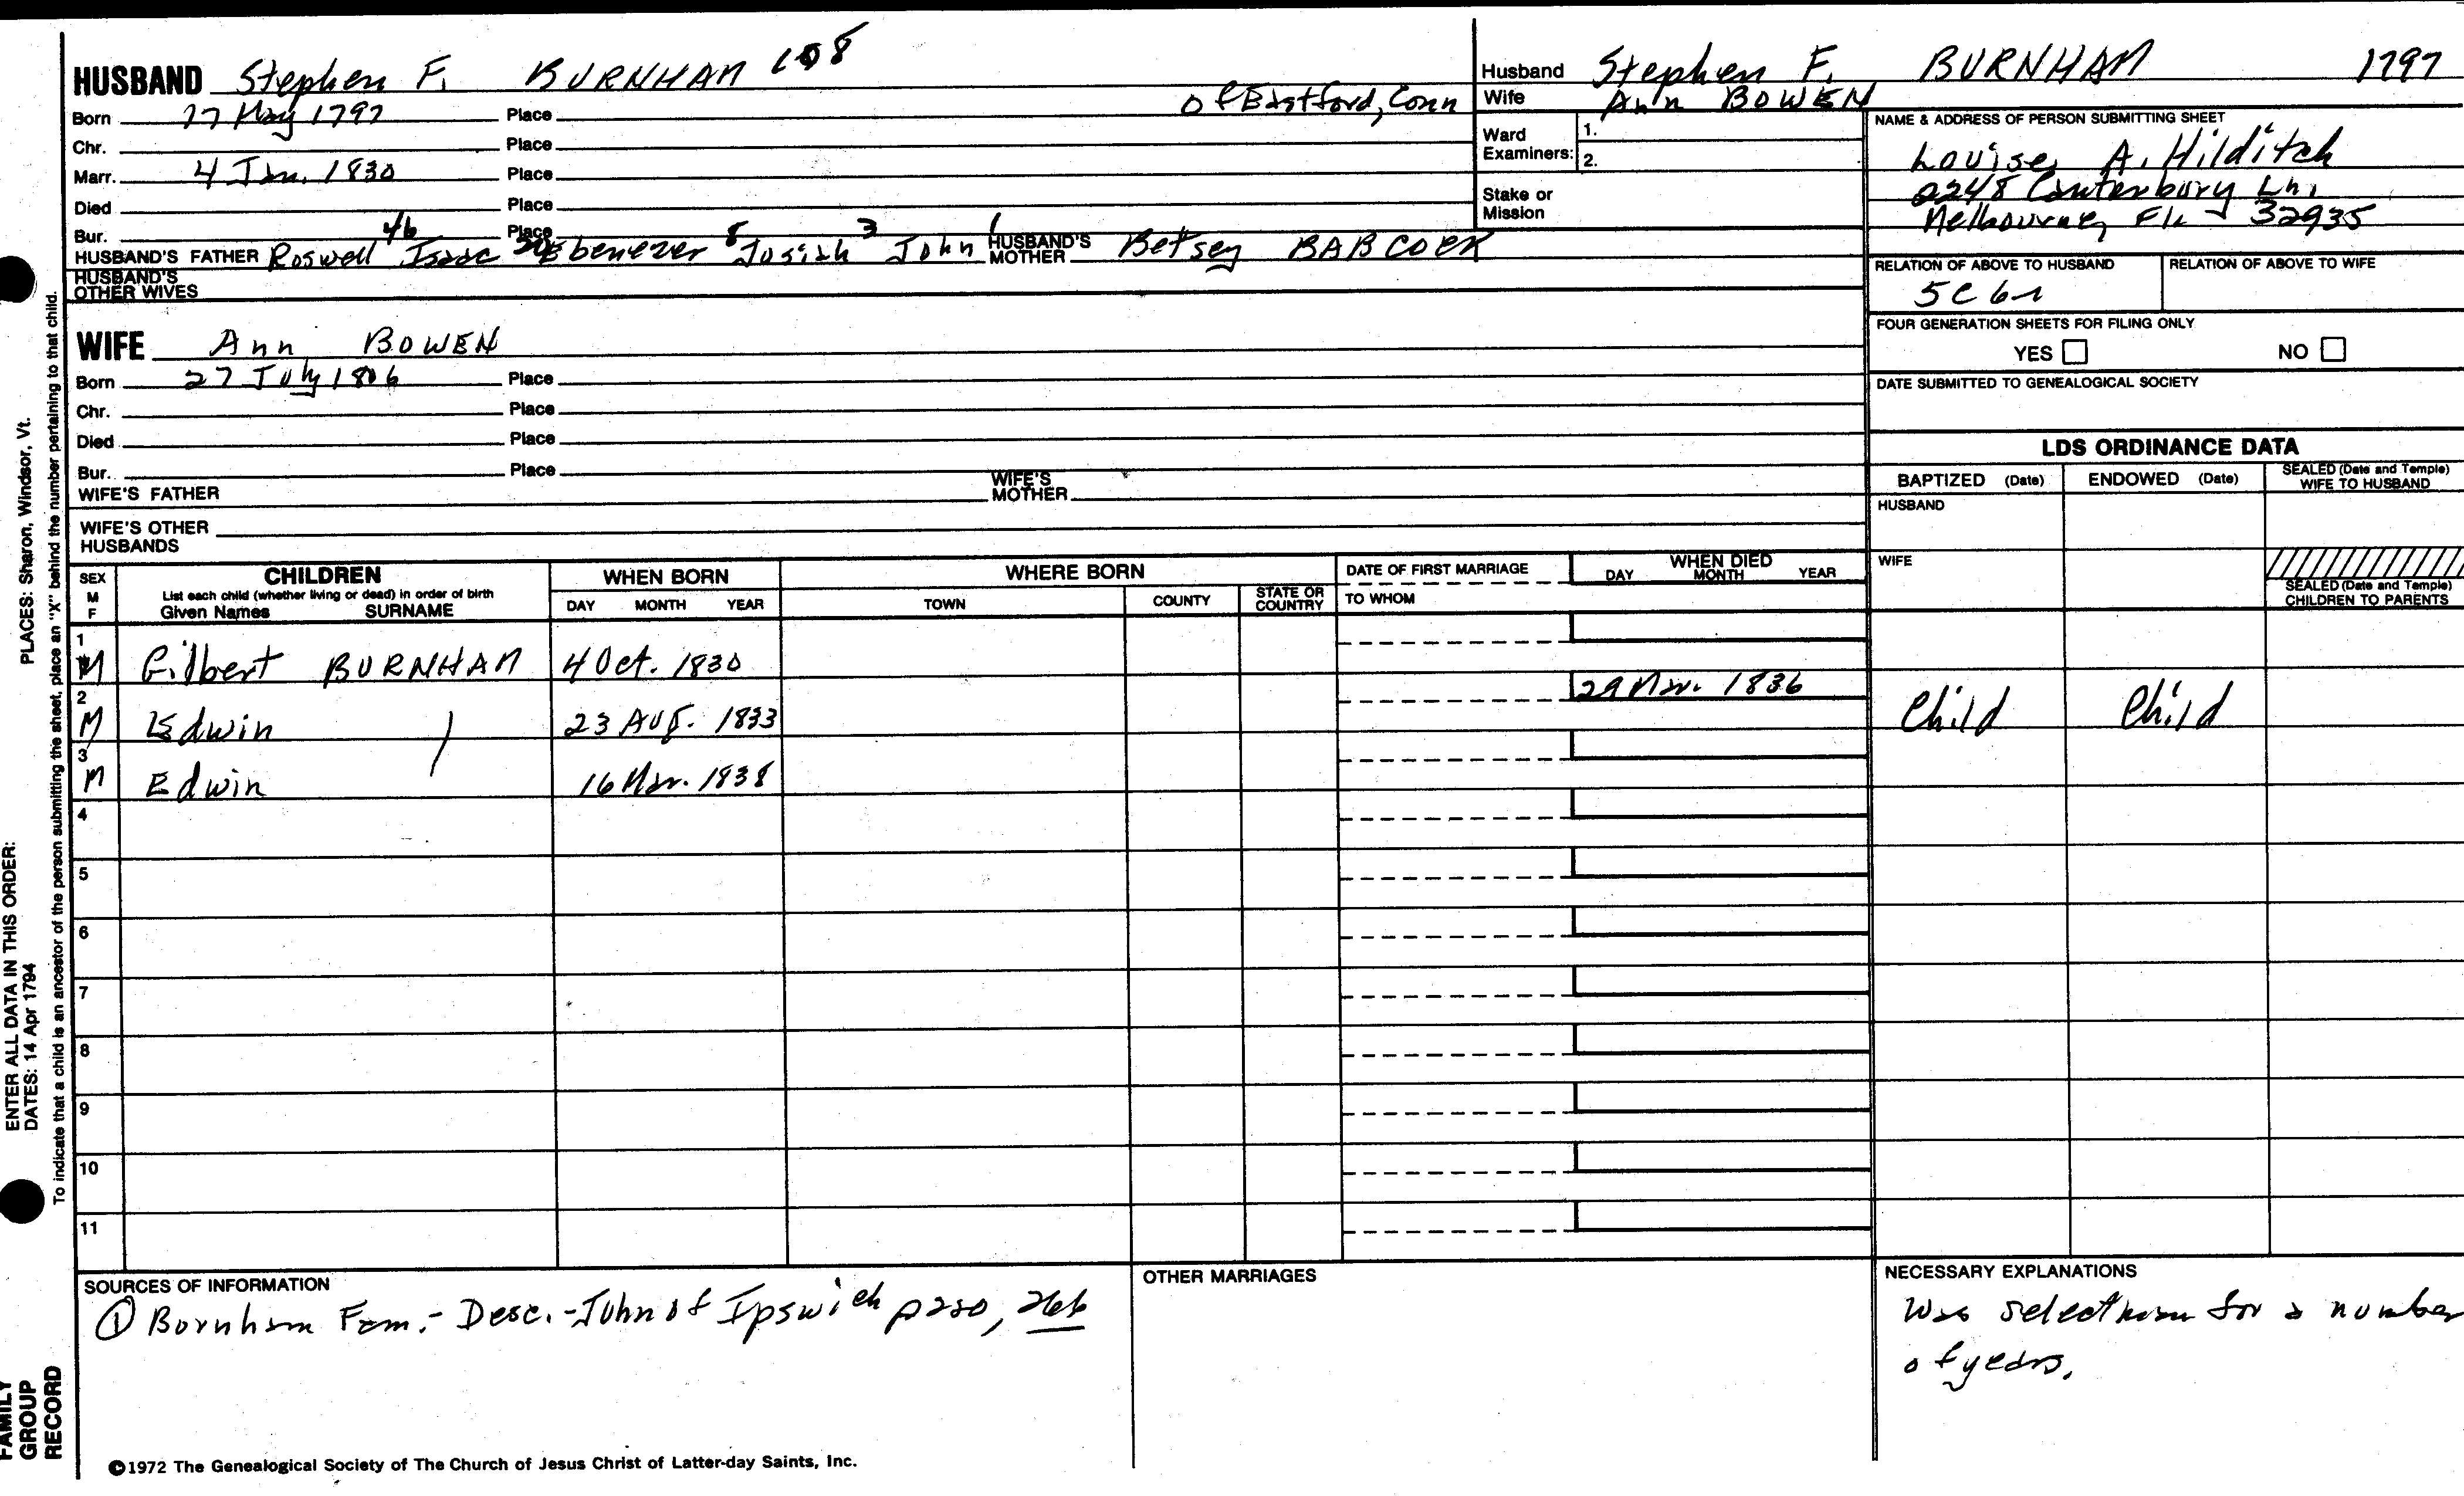 HUSBAND Stephen F. BURNHAM 108
Born 27 May 1797 Place of Eastford, Conn
Chr. Place
Marr. 4 Jan. 1830 Place
Died Place
Bur. Place
HUSBAND'S FATHER Roswell 46 Isaac 20 Ebenezer 8 Josiah 3 John 1 HUSBAND'S MOTHER Betsey BABCOCK
HUSBAND'S OTHER WIVES
WIFE Ann BOWEN
Born 27 July 1806 Place
Chr. Place
Died Place
Bur. Place
WIFE'S FATHER WIFE'S MOTHER
WIFE'S OTHER HUSBANDS
Husband Stephen F. BURNHAM 1797
Wife Ann BOWEN
Ward Examiners: 1.
2.
Stake or Mission
NAME & ADDRESS OF PERSON SUBMITTING SHEET
Louise A. Hilditch
2248 Canterbury Ln.
Melbourne, Fla - 32935
RELATION OF ABOVE TO HUSBAND RELATION OF ABOVE TO WIFE
5C 6r
FOUR GENERATION SHEETS FOR FILING ONLY
YES NO
DATE SUBMITTED TO GENEALOGICAL SOCIETY
LDS ORDINANCE DATA
BAPTIZED (Date) ENDOWED (Date) SEALED (Date and Temple) WIFE TO HUSBAND
HUSBAND
WIFE
SEALED (Date and Temple) CHILDREN TO PARENTS
SEX M F
CHILDREN
List each child (whether living or dead) in order of birth
Given Names SURNAME
WHEN BORN
DAY MONTH YEAR
WHERE BORN
TOWN COUNTY STATE OR COUNTRY
DATE OF FIRST MARRIAGE
TO WHOM
WHEN DIED
DAY MONTH YEAR
1 M Gilbert BURNHAM 4 Oct. 1830
2 M Edwin 23 Aug. 1833 29 Mar. 1836 Child Child
3 M Edwin 16 Mar. 1838
4
5
6
7
8
9
10
11
SOURCES OF INFORMATION
① Burnham Fam. - Desc. - John of Ipswich p 250, 266
OTHER MARRIAGES
NECESSARY EXPLANATIONS
Was selectman for a number
of years.
©1972 The Genealogical Society of The Church of Jesus Christ of Latter-day Saints, Inc.
PLACES: Sharon, Windsor, Vt.
ENTER ALL DATA IN THIS ORDER:
DATES: 14 Apr 1794
To indicate that a child is an ancestor of the person submitting the sheet, place an "X" behind the number pertaining to that child.
FAMILY
GROUP
RECORD